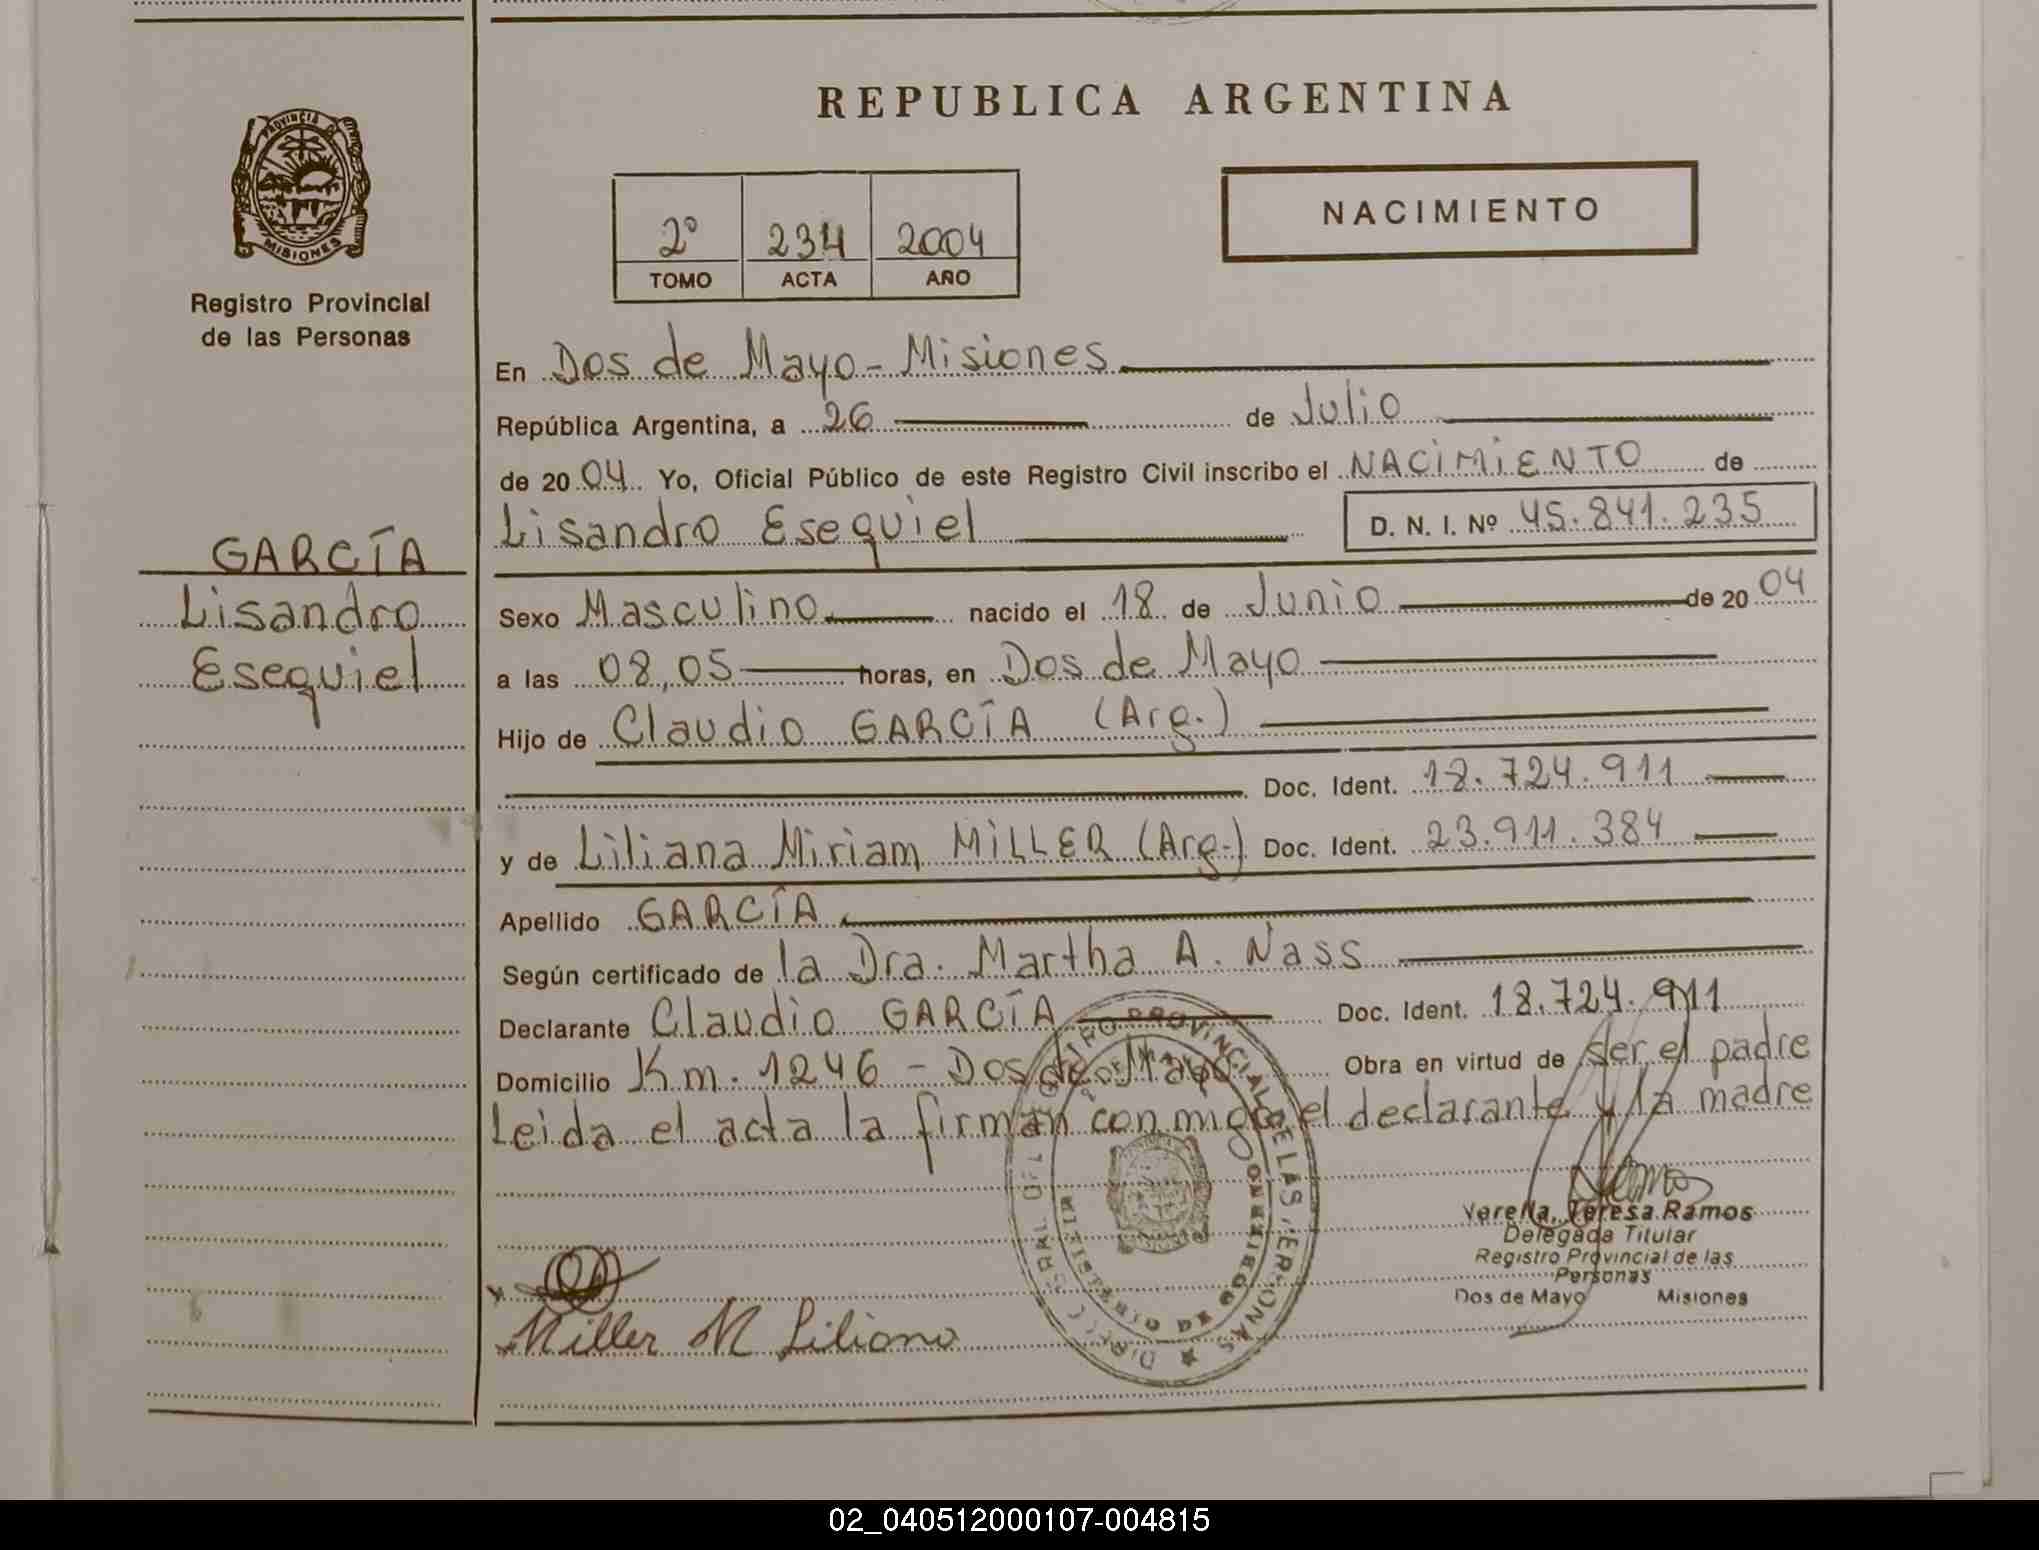 REPUBLICA ARGENTINA
PROVINCIA DE MISIONES
Registro Provincial
de las Personas
2º 234 2004
TOMO ACTA AÑO
NACIMIENTO
GARCÍA
Lisandro
Esequiel
En Dos de Mayo - Misiones
República Argentina, a 26 de Julio
de 2004 Yo, Oficial Público de este Registro Civil inscribo el NACIMIENTO de
Lisandro Esequiel D. N. I. Nº 45.841.235
Sexo Masculino nacido el 18 de Junio de 2004
a las 08,05 horas, en Dos de Mayo
Hijo de Claudio GARCÍA (Arg.)
Doc. Ident. 18.724.911
y de Liliana Miriam MILLER (Arg.) Doc. Ident. 23.911.384
Apellido GARCÍA
Según certificado de la Dra. Martha A. Nass
Declarante Claudio GARCÍA Doc. Ident. 18.724.911
Domicilio Km. 1246 - Dos de Mayo Obra en virtud de ser el padre
Leida el acta la firman conmigo el declarante y la madre
Verella, Teresa Ramos
Delegada Titular
Registro Provincial de las
Personas
Dos de Mayo Misiones
Miller M Liliana
REGISTRO PROVINCIAL DE LAS PERSONAS
02_040512000107-004815